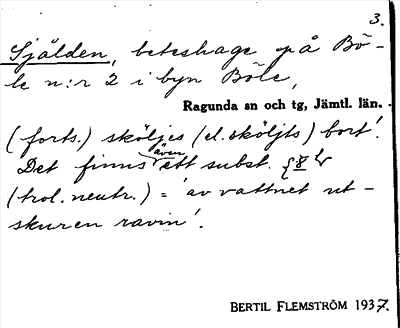 3.
Själden, beteshage på Bö-
le n:r 2 i byn Böle,
Ragunda sn och tg, Jämtl. län.
(forts.) sköljes (el. sköljts) bort'.
Det finns även ett subst.
(trol. neutr.) = 'av vattnet ut-
skuren ravin'.
BERTIL FLEMSTRÖM 1937.